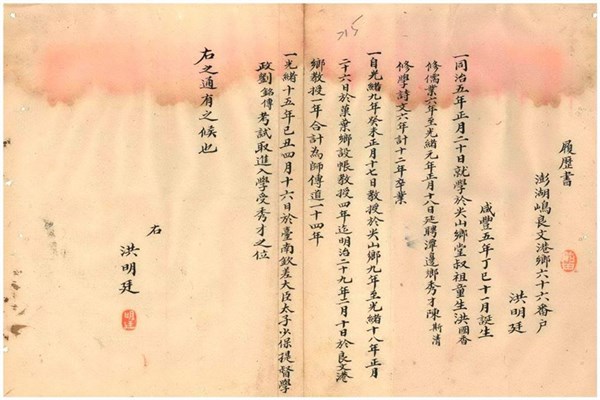 履歷書
澎湖嶋良文港鄉六十六番戶
洪明廷
咸豐五年丁巳十一月誕生
一同治五年正月二十日就學於尖山鄉堂叔祖童生洪國香
修儒業六年至光緒元年正月十八日延聘潭邊鄉秀才陳斯清
修學詩文六年計十二年卒業
一自光緒九年癸未正月十七日教授於尖山鄉九年至光緒十八年正月
二十六日於菓葉鄉設帳教授四年迄明治二十九年二月十日於良文港
鄉教授一年合計為師傳道一十四年
一光緒十五年己丑四月十六日於臺南欽差大臣太子少保提督學
政劉銘傳考試取進入學受秀才之位
右之通有之候也
右
洪明廷